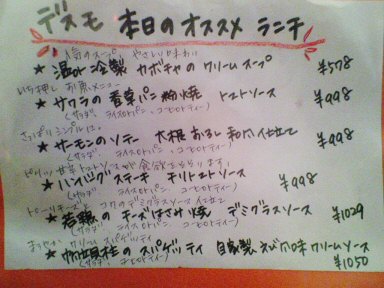 デスモ 本日のオススメ ランチ
人気のスープ やさしい味わい
★ 温or冷製 カボチャの クリームスープ ¥578
いち押し お魚メニュー
★ サワラの香草パン粉焼 トマトソース ¥998
(サラダ、ライスorパン、コーヒorティー)
さっぱりシンプルに。
★ サーモンのソテー 大根おろし 和風仕立て ¥998
(サラダ ライスorパン、コーヒorティー)
食欲をそそります。
★ ハンバーグステーキ チリトマトソース ¥998
(サラダ ライスorパン、コーヒorティー)
デミグラスソース仕立て
★ 若鶏の チーズはさみ焼 デミグラスソース ¥1029
(サラダ ライスorパン、コーヒorティー)
クリームスパゲッティ
★ 帆立貝柱のスパゲッティ 自家製えび風味クリームソース
(サラダ、コーヒorティー) ¥1050